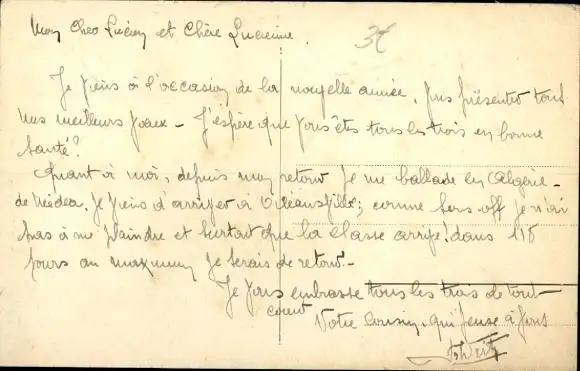 Mon cher Lucien et Chère Lucienne.
3€
Je viens à l'occasion de la nouvelle année, vous présenter tout
mes meilleurs vœux - J'espère que vous êtes tous les trois en bonne
santé?
Quant à moi, depuis mon retour je me ballade en Algérie -
de Médéa, je viens d'arriver à Orléansville; comme sous off je n'ai
pas à me plaindre et surtout que la classe arrive, dans 115
jours au maximum je serais de retour. -
Je vous embrasse tous les trois de tout
cœur
Votre cousin, qui pense à vous